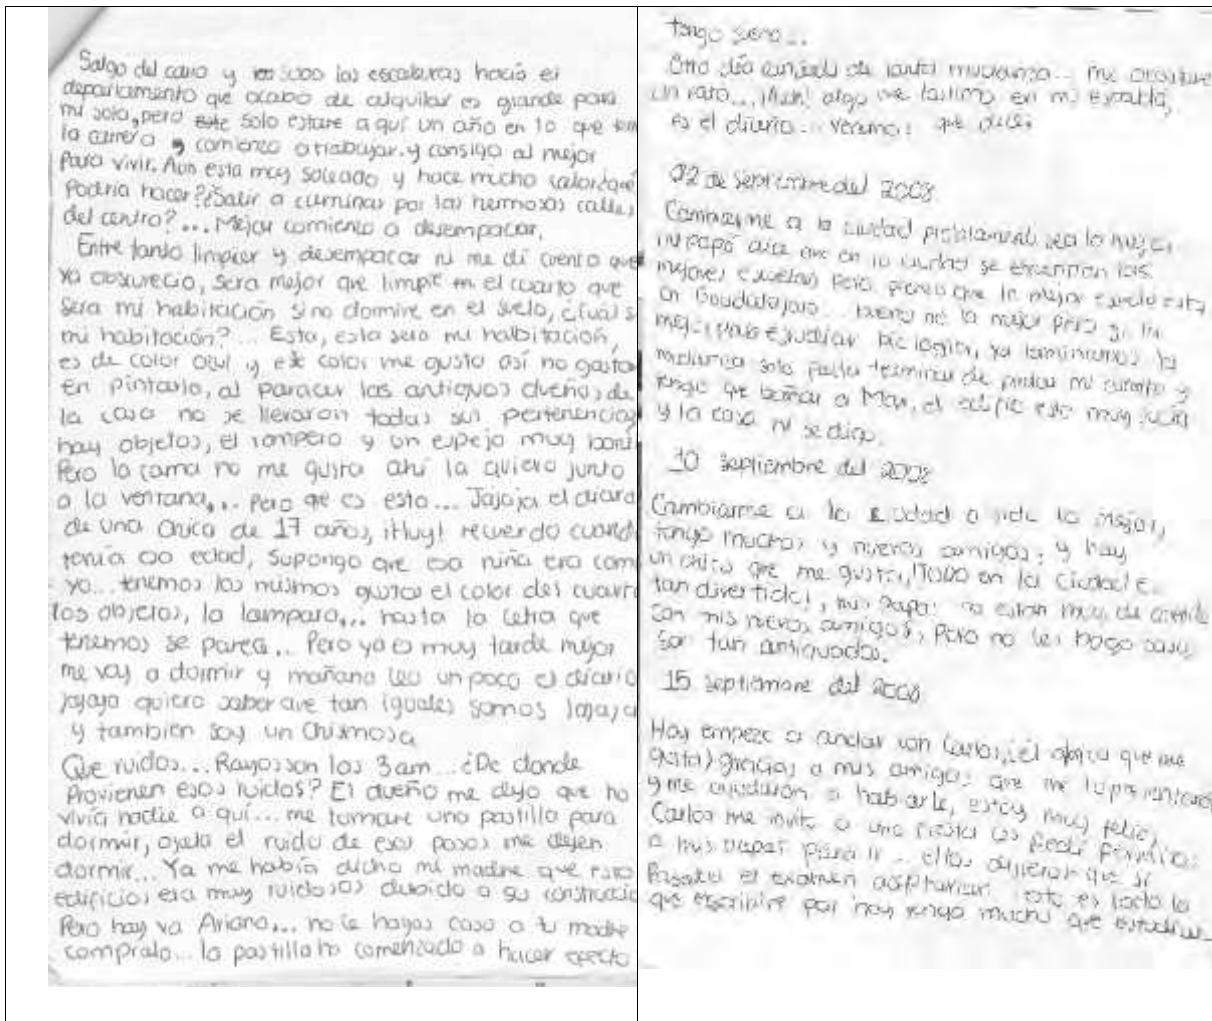 Salgo del carro y subo las escaleras hacia el
departamento que acabo de alquilar es grande para
mi sola, pero este solo estare aquí un año en lo que
la carrera, comienzo a trabajar. y consigo al mejor
Para vivir. Aun esta muy soleado y hace mucho calor ¿qué
Podria hacer? ¿Salir a caminar por las hermosas calles
del centro?... Mejor comienzo a desempacar.
Entre tanto limpiar y desempacar ni me di cuenta que
ya obscurecio, sera mejor que limpie en el cuarto que
sera mi habitación sino dormire en el suelo, ¿cuál
mi habitación?... Esta, esta sera mi habitación,
es de color azul y este color me gusta así no gasto
en pintarlo, al parecer las antiguos dueños de
la casa no se llevaron todas sus pertenencias
hay objetos, el ropero y un espejo muy
Pero la cama no me gusta ahí la quiero junto
a la ventana... Pero qe es esto... Jajaja el diario
de una chica de 17 años, ¡Huy! recuerdo cuando
tenía esa edad, Supongo que esa niña era com
yo... tenemos los mismos gustos el color del cuarto
los objetos, la lampara... hasta la letra que
tenemos se parece.. Pero ya es muy tarde mejor
me voy a dormir y mañana leo un poco el diario
jajaja quiero saber que tan iguales somos jajaja
y tambien soy un Chismosa
Que ruidos... Rayos son las 3am... ¿De donde
Provienen esos ruidos? El dueño me dijo que no
vivía nadie aquí... me tomare una pastilla para
dormir, ojala el ruido de esos pasos me dejen
dormir... Ya me había dicho mi madre que estos
edificios era muy ruidosos debido a su construcció
Pero hay va Ariana... no le hagas caso a tu madre
compralo... la pastilla ha comenzado a hacer efecto
tengo sueño...
Otro día cansado de tanta mudanza... me acostare
un rato... ¡Auh! algo me lastimo en mi espalda,
es el diario... veamos que dice:
02 de Septiembre del 2008
Cambiarme a la ciudad probablemente sea lo mejor
mi papá dice que en la ciudad se encuentran las
mejores escuelas pero pienso que la mejor escuela esta
en Guadalajara... bueno no la mejor pero si la
mejor para estudiar biología, ya terminamos la
mudanza solo falta terminar de pintar mi cuarto y
tengo que bañar a Max, el esta muy sucio
y la casa ni se diga.
10 septiembre del 2008
Cambiarme a la ciudad a sido lo mejor,
tengo muchos y nuevos amigos, y hay
un chico que me gusta, ¡TODO en la Ciudad es
tan divertido!, mis papas no estan muy de acuerdo
con mis nuevos amigos, pero no les hago caso,
son tan anticuados.
15 septiembre del 2008
Hoy empeze a andar con Carlos, (el chico que me
gusta) gracias a mis amigas que me lo presentaron
y me ayudaron a hablarle, estoy muy feliz,
Carlos me invito a una fiesta Pedi Permiso
a mis papas para ir... ellos dijeron que si
Pasaba el examen esto es todo lo
que escribire por hoy tengo mucho que estudiar